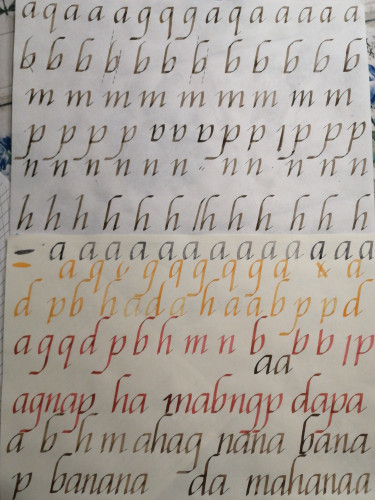 a q a a a g g g a q a a a a a
b b b b b b b b b b b b
m m m m m m m m m m
p p p p p p p p p p
n n n n n n n n n n n
h h h h h h h h h h h
a a a a a a a a a a a a a
a q g q g q g a a
d p b h a d a h a a b p p d
a g q d p b h m n b b b p
aa
agnap ha mabngp dapa
a b h m ahag nana bana
p banana da mahanaa